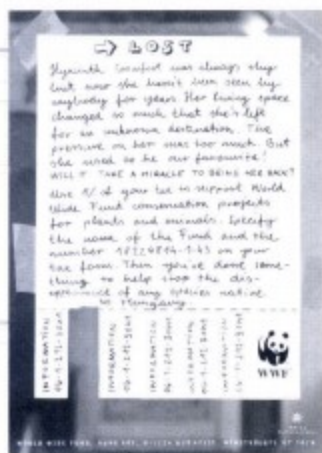 ⇨ LOST
was always shy
but now she hasn't been seen by
anybody for years. Her living space
changed so much that she's left
for an unknown destination. The
pressure on her was too much. But
she used to be our favourite!
WILL IT TAKE A MIRACLE TO BRING HER BACK?
Use 1% of your tax to support World
Wide Fund conservation projects
for plants and animals. Specify
the name of the Fund and the
number on your
tax form. Then you've done some-
thing to help stop the dis-
appearance of any species native
to Hungary.
INFORMATION
INFORMATION
INFORMATION
INFORMATION
INFORMATION
WWF
WORLD WIDE FUND,